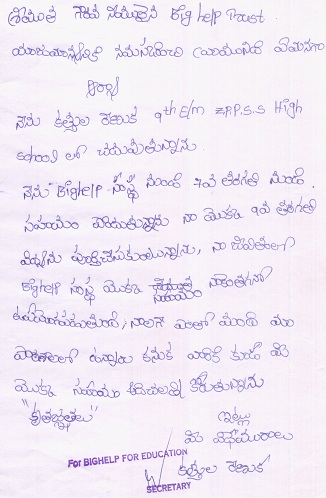 శ్రీయుత గౌరవనీయులైన Big help Trust
ఆర్యా
నేను కత్తుల రేణుక 9th E/m Z.P.P.S.S High
school లో చదువుతున్నాను.
నేను Bighelp సంస్థ నుండి 7వ తరగతి నుండి
సహాయం పొందుతున్నాను నా యొక్క 9వ తరగతి
విద్యను పూర్తిచేసుకుంటున్నాను, నా జీవితంలో
Bighelp సంస్థ యొక్క సహాయం నాకెంతగానో
ఉపయోగపడుతుంది, నాలాగ ఎంతో మంది మా
పాఠశాలలో ఉన్నారు కనుక వారికి కూడా మీ
యొక్క సహాయం అందించాలని కోరుతున్నాను
"కృతజ్ఞతలు"
ఇట్లు
మీ విధేయురాలు
కత్తుల రేణుక
For BIGHELP FOR EDUCATION
SECRETARY